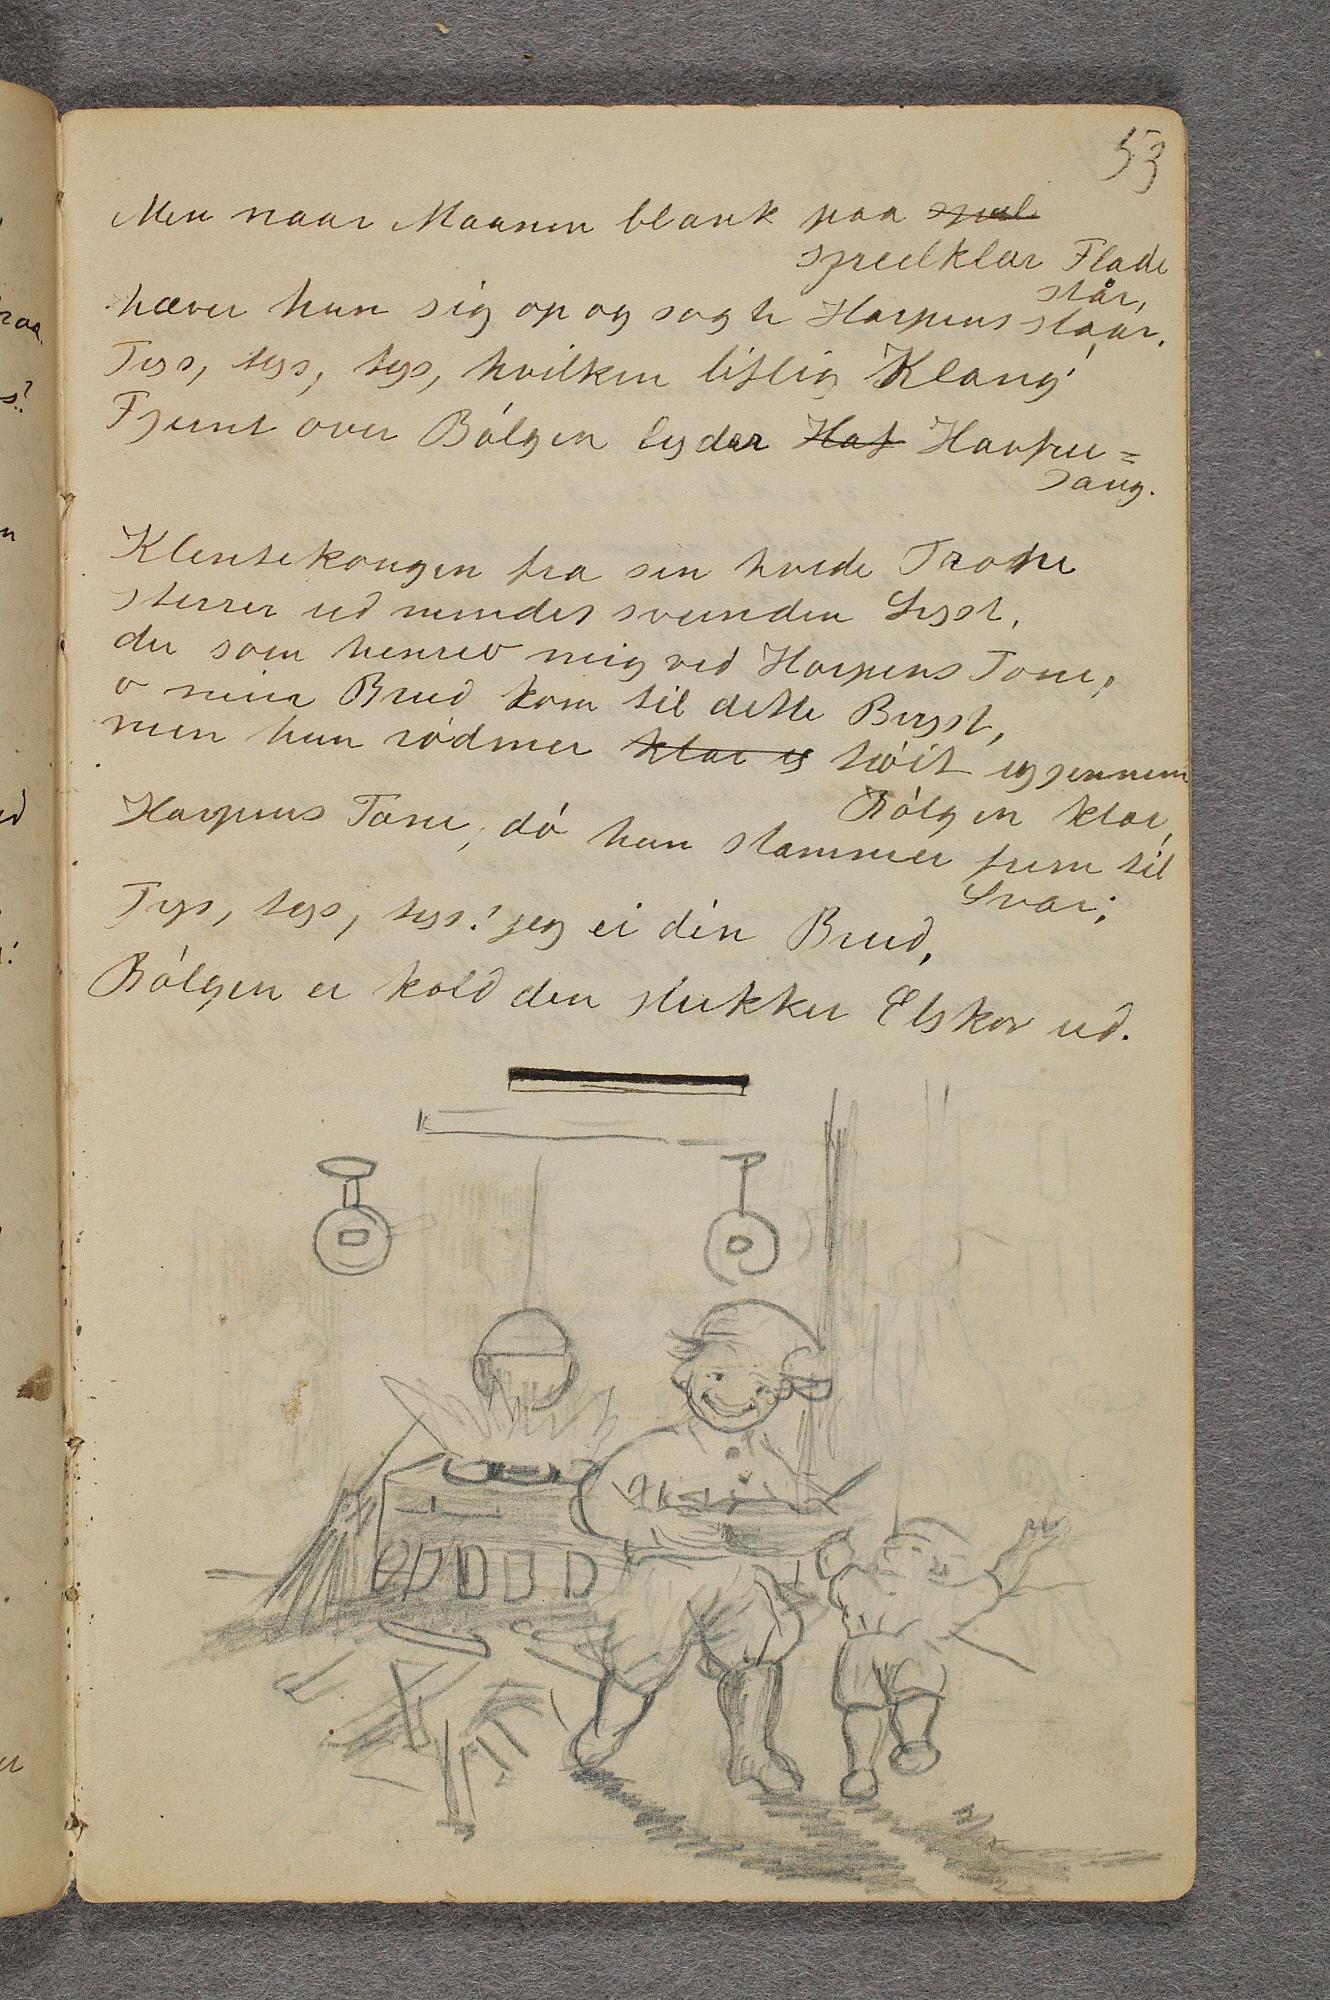 53
Men naar Maanen blank paa speil
speilklar Flade
står,
hæver hun sig op og sagte Harpens slaar.
Tys, tys, tys, hvilken liflig Klang!
Fjernt over Bølgen lyder Haf Harpe=
sang.
Klintekongen fra sin hvide Trone
stirrer ud mindes svunden Lyst,
du som henrev mig ved Harpens Tone,
o min Brud kom til dette Bryst,
men hun rødmer klar og høit iggennem
Bølgen klar,
Harpens Tone, dó hun stammer frem til
Svar;
Tys, tys, tys! jeg ei din Brud,
Bølgen er kold den slukker Elskov ud.